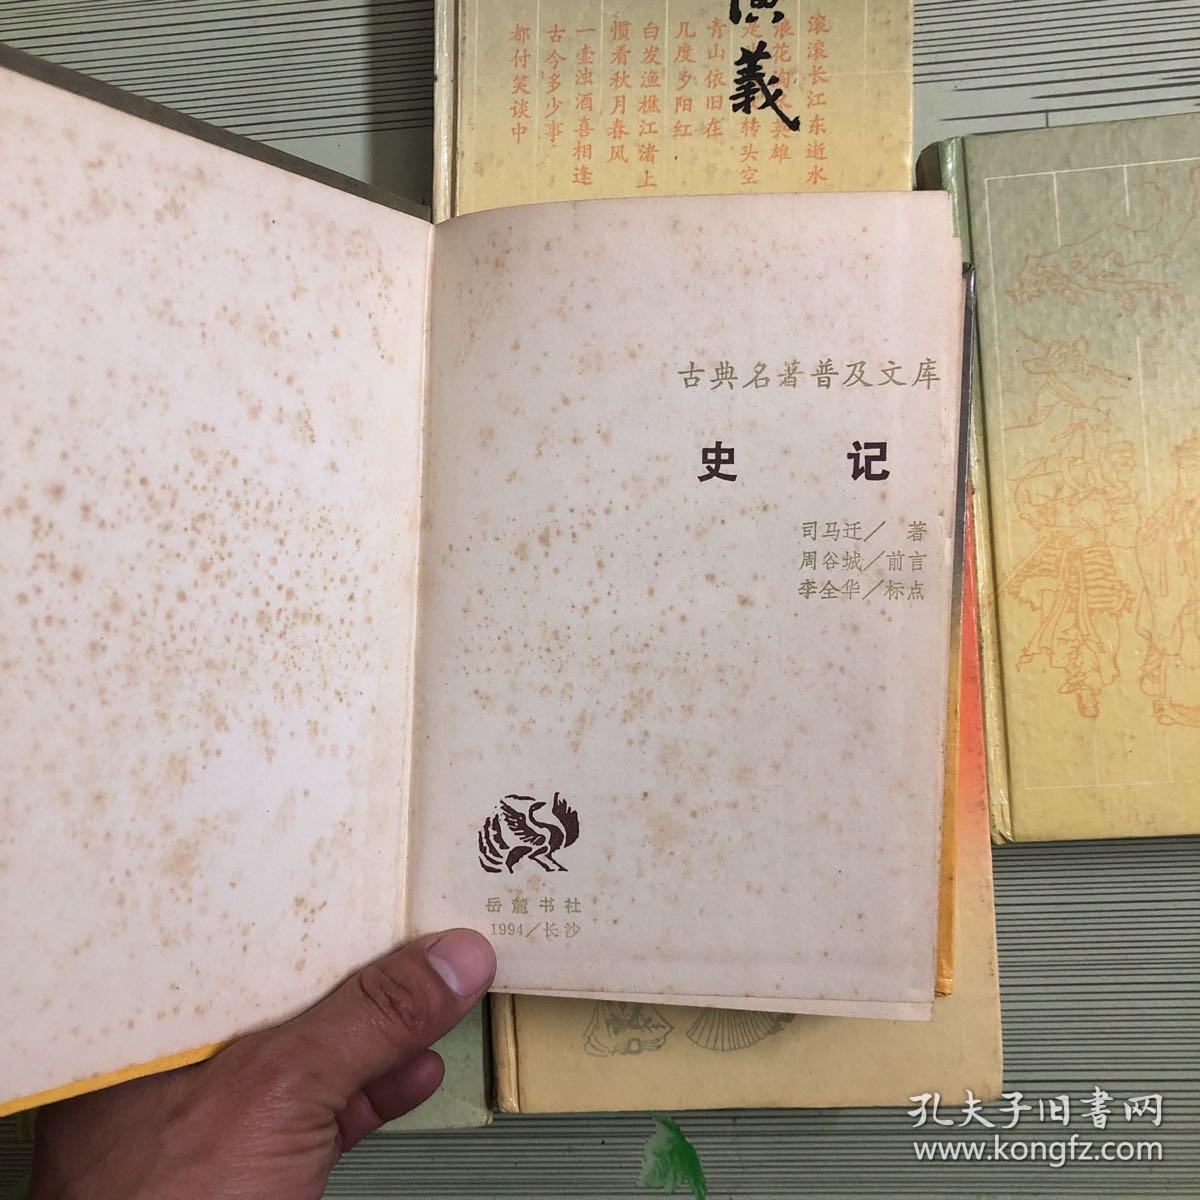 演義
滚滚长江东逝水
浪花淘尽英雄
转头空
青山依旧在
几度夕阳红
白发渔樵江渚上
惯看秋月春风
一壶浊酒喜相逢
古今多少事
都付笑谈中
古典名著普及文库
史 记
司马迁／ 著
周谷城／前言
李全华／标点
岳麓书社
1994／长沙
孔夫子旧書网
www.kongfz.com